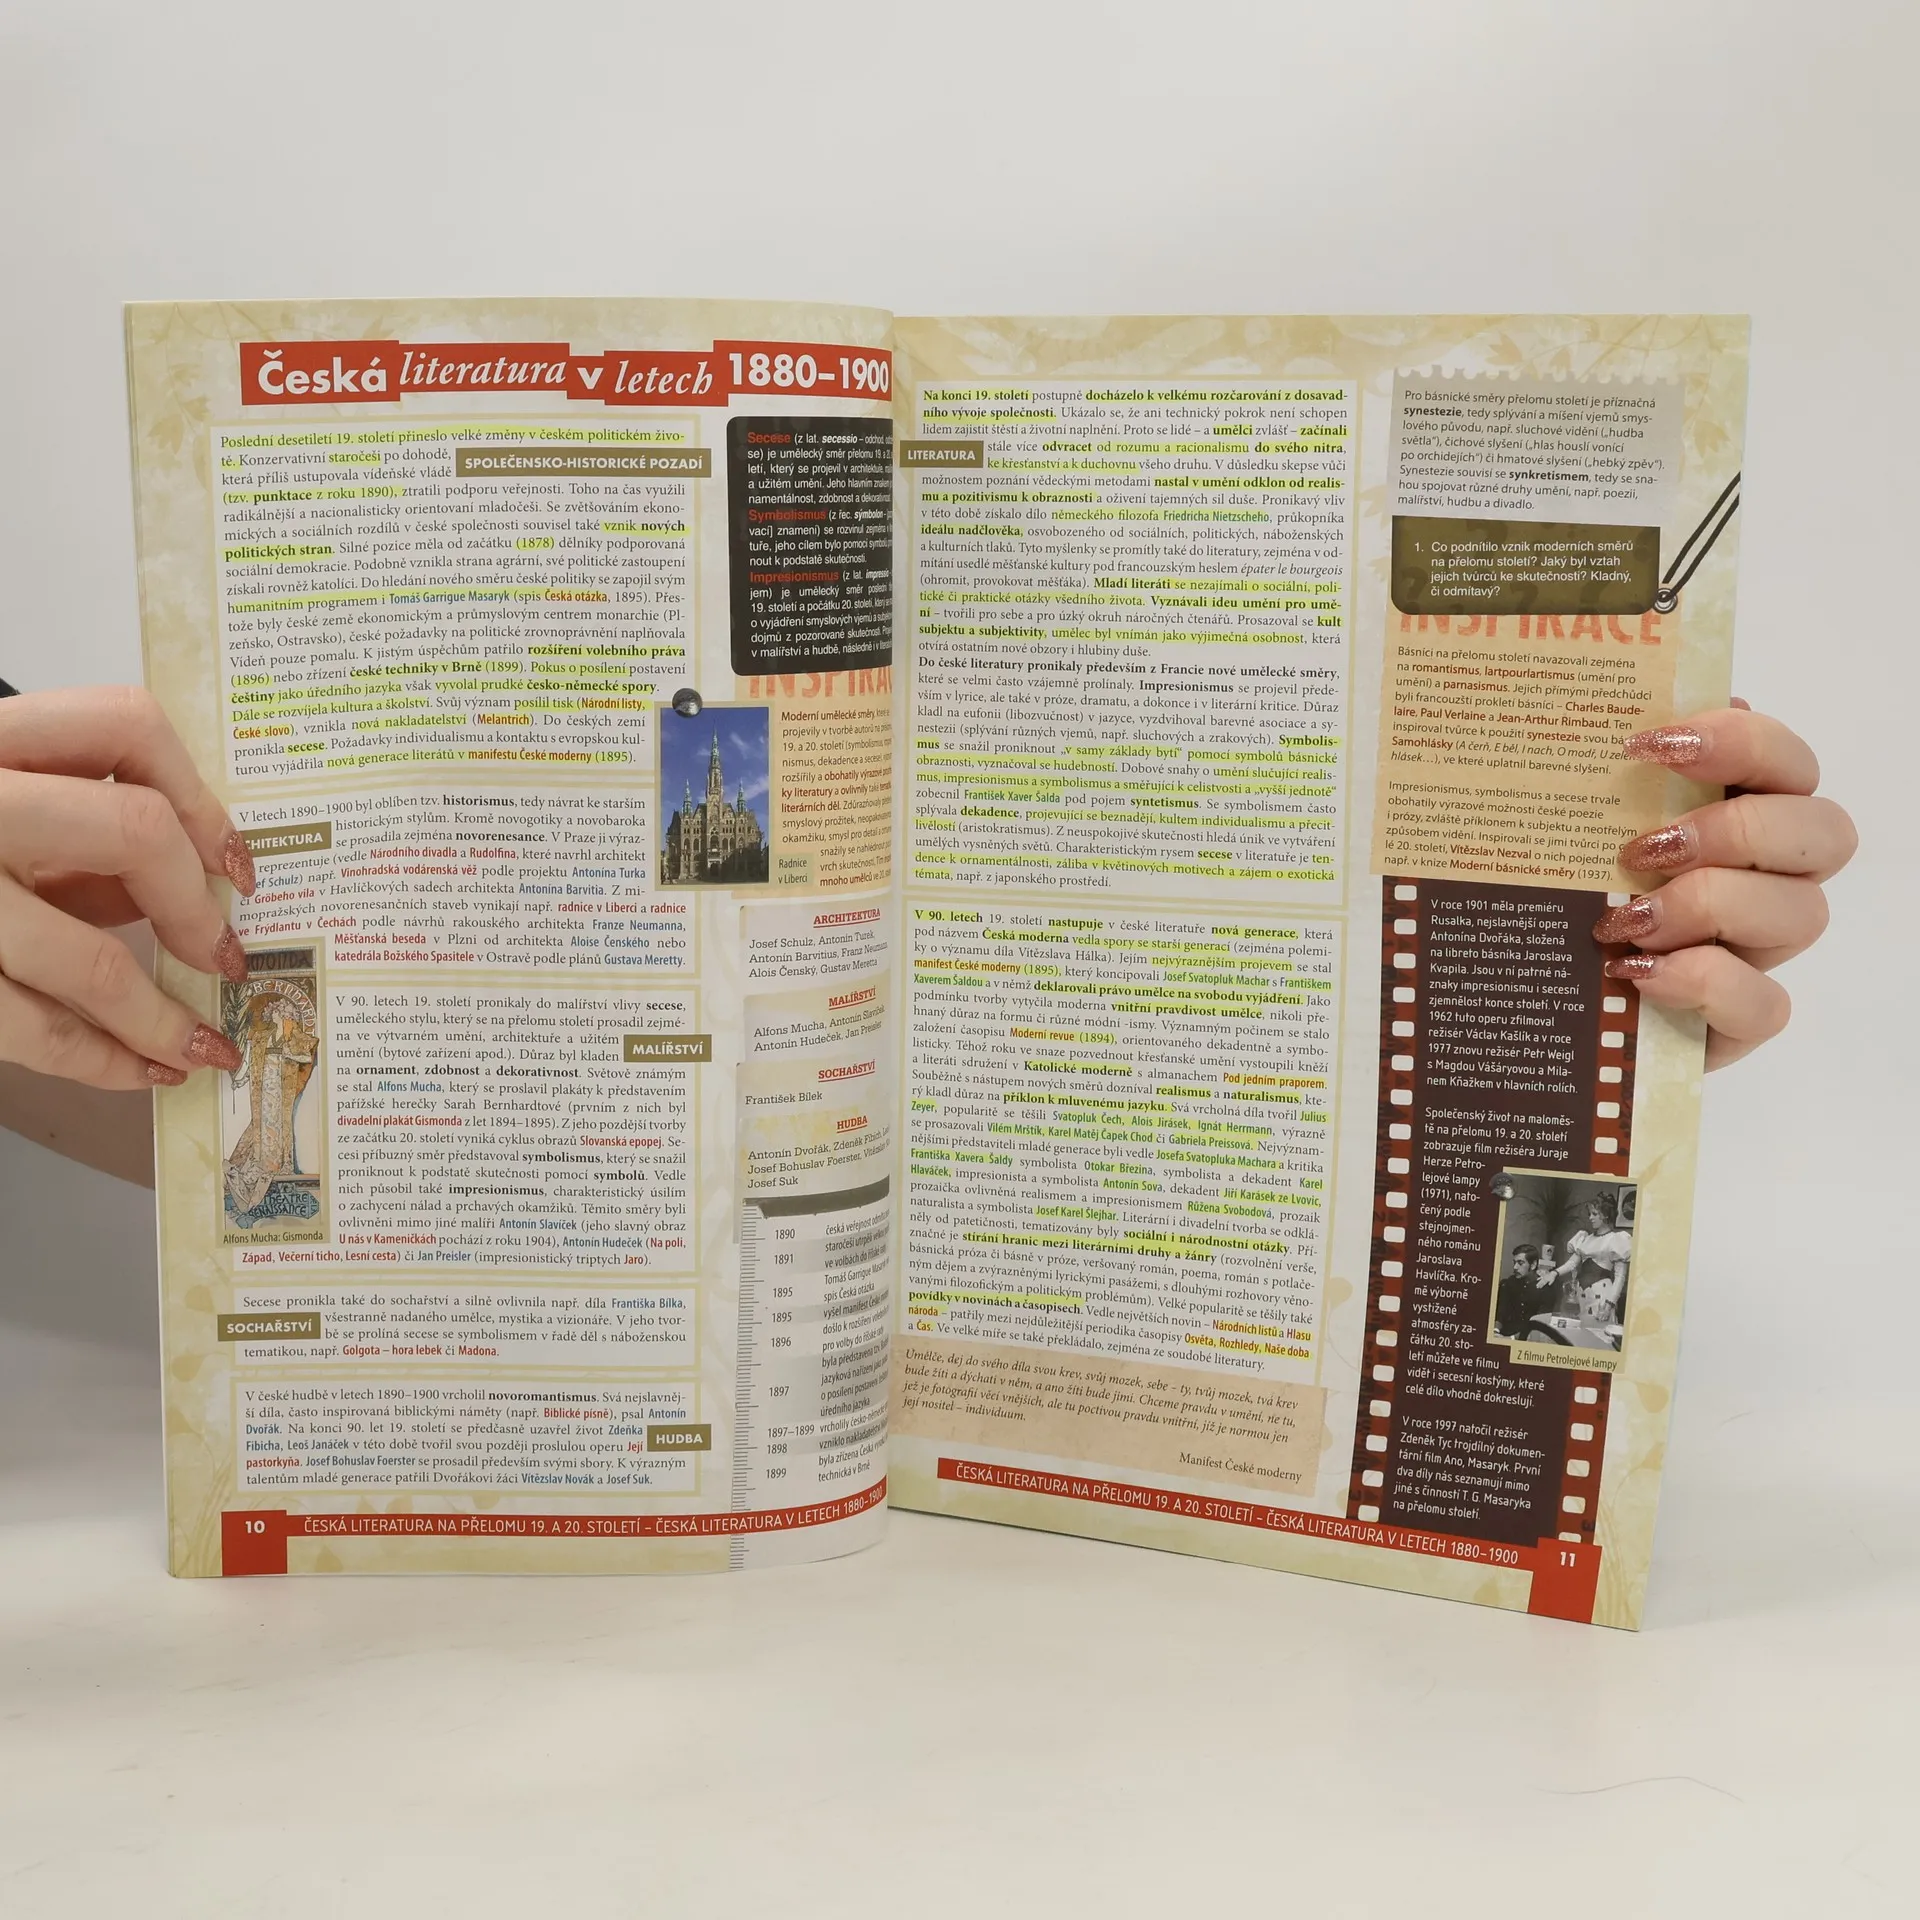 Česká literatura v letech 1880–1900
Poslední desetiletí 19. století přineslo velké změny v českém politickém živo-
tě. Konzervativní staročeši po dohodě,
která příliš ustupovala vídeňské vládě
SPOLEČENSKO-HISTORICKÉ POZADÍ
(tzv. punktace z roku 1890), ztratili podporu veřejnosti. Toho na čas využili
radikálnější a nacionalisticky orientovaní mladočeši. Se zvětšováním ekono-
mických a sociálních rozdílů v české společnosti souvisel také vznik nových
politických stran. Silné pozice měla od začátku (1878) dělníky podporovaná
sociální demokracie. Podobně vznikla strana agrární, své politické zastoupení
získali rovněž katolíci. Do hledání nového směru české politiky se zapojil svým
humanitním programem i Tomáš Garrigue Masaryk (spis Česká otázka, 1895). Přes-
tože byly české země ekonomickým a průmyslovým centrem monarchie (Pl-
zeňsko, Ostravsko), české požadavky na politické zrovnoprávnění naplňovala
Vídeň pouze pomalu. K jistým úspěchům patřilo rozšíření volebního práva
(1896) nebo zřízení české techniky v Brně (1899). Pokus o posílení postavení
češtiny jako úředního jazyka však vyvolal prudké česko-německé spory.
Dále se rozvíjela kultura a školství. Svůj význam posílil tisk (Národní listy,
České slovo), vznikla nová nakladatelství (Melantrich). Do českých zemí
pronikla secese. Požadavky individualismu a kontaktu s evropskou kul-
turou vyjádřila nová generace literátů v manifestu České moderny (1895).
V letech 1890–1900 byl oblíben tzv. historismus, tedy návrat ke starším
historickým stylům. Kromě novogotiky a novobaroka
CHITEKTURA
se prosadila zejména novorenesance. V Praze ji výraz-
reprezentuje (vedle Národního divadla a Rudolfina, které navrhl architekt
ef Schulz) např. Vinohradská vodárenská věž podle projektu Antonína Turka
či Gröbeho vila v Havlíčkových sadech architekta Antonína Barvitia. Z mi-
mopražských novorenesančních staveb vynikají např. radnice v Liberci a radnice
ve Frýdlantu v Čechách podle návrhů rakouského architekta Franze Neumanna,
Měšťanská beseda v Plzni od architekta Aloise Čenského nebo
katedrála Božského Spasitele v Ostravě podle plánů Gustava Meretty.
V 90. letech 19. století pronikaly do malířství vlivy secese,
uměleckého stylu, který se na přelomu století prosadil zejmé-
na ve výtvarném umění, architektuře a užitém
umění (bytové zařízení apod.). Důraz byl kladen
MALÍŘSTVÍ
na ornament, zdobnost a dekorativnost. Světově známým
se stal Alfons Mucha, který se proslavil plakáty k představením
pařížské herečky Sarah Bernhardtové (prvním z nich byl
divadelní plakát Gismonda z let 1894–1895). Z jeho pozdější tvorby
ze začátku 20. století vyniká cyklus obrazů Slovanská epopej. Se-
cesi příbuzný směr představoval symbolismus, který se snažil
proniknout k podstatě skutečnosti pomocí symbolů. Vedle
nich působil také impresionismus, charakteristický úsilím
o zachycení nálad a prchavých okamžiků. Těmito směry byli
ovlivněni mimo jiné malíři Antonín Slavíček (jeho slavný obraz
U nás v Kameničkách pochází z roku 1904), Antonín Hudeček (Na poli,
Západ, Večerní ticho, Lesní cesta) či Jan Preisler (impresionistický triptych Jaro).
BERNHARDT
THEATRE
RENAISSANCE
Alfons Mucha: Gismonda
Secese pronikla také do sochařství a silně ovlivnila např. díla Františka Bílka,
SOCHAŘSTVÍ
všestranně nadaného umělce, mystika a vizionáře. V jeho tvor-
bě se prolíná secese se symbolismem v řadě děl s náboženskou
tematikou, např. Golgota – hora lebek či Madona.
V české hudbě v letech 1890–1900 vrcholil novoromantismus. Svá nejslavněj-
ší díla, často inspirovaná biblickými náměty (např. Biblické písně), psal Antonín
Dvořák. Na konci 90. let 19. století se předčasně uzavřel život Zdeňka
Fibicha, Leoš Janáček v této době tvořil svou později proslulou operu Její
HUDBA
pastorkyňa. Josef Bohuslav Foerster se prosadil především svými sbory. K výrazným
talentům mladé generace patřili Dvořákovi žáci Vítězslav Novák a Josef Suk.
Secese (z lat. secessio – odchod,
se) je umělecký směr přelomu 19. a 20.
letí, který se projevil v architektuře,
a užitém umění. Jeho hlavním znakem
namentálnost, zdobnost a dekorativnost
Symbolismus (z řec. sýmbolon
vací] znamení) se rozvinul zejména v
tuře, jeho cílem bylo pomocí symbolů
nout k podstatě skutečnosti.
Impresionismus (z lat. impressio
jem) je umělecký směr poslední
19. století a počátku 20. století, který
o vyjádření smyslových vjemů a
dojmů z pozorované skutečnosti.
v malířství a hudbě, následně i v
INSPIRA
Moderní umělecké směry, které se
projevily v tvorbě autorů na
19. a 20. století (symbolismus,
nismus, dekadence a secese)
rozšířily a obohatily výrazové
ky literatury a ovlivnily také
literárních děl. Zdůrazňovaly
smyslový prožitek,
okamžiku, smysl pro detail a
snažily se nahlédnout
vrch skutečnosti. Tím
mnoho umělců ve 20.
Radnice
v Liberci
ARCHITEKTURA
Josef Schulz, Antonín Turek,
Antonín Barvitius, Franz Neumann
Alois Čenský, Gustav Meretta
MALÍŘSTVÍ
Alfons Mucha, Antonín Slavíček
Antonín Hudeček, Jan Preisler
SOCHAŘSTVÍ
František Bílek
HUDBA
Antonín Dvořák, Zdeněk Fibich,
Josef Bohuslav Foerster,
Josef Suk
1890 česká veřejnost
staročeši utrpěli
1891 ve volbách do říšské
Tomáš Garrigue
1895 spis Česká otázka
1895 vyšel manifest České
došlo k rozšíření
1896 pro volby do říšské
byla představena
jazyková nařízení
1897 o posílení postavení
úředního jazyka
1897–1899 vrcholily česko-německé
1898 vzniklo nakladatelství
byla zřízena Česká
1899 technická v Brně
10 ČESKÁ LITERATURA NA PŘELOMU 19. A 20. STOLETÍ – ČESKÁ LITERATURA V LETECH 1880–1900
Na konci 19. století postupně docházelo k velkému rozčarování z dosavad-
ního vývoje společnosti. Ukázalo se, že ani technický pokrok není schopen
lidem zajistit štěstí a životní naplnění. Proto se lidé – a umělci zvlášť – začínali
LITERATURA
stále více odvracet od rozumu a racionalismu do svého nitra,
ke křesťanství a k duchovnu všeho druhu. V důsledku skepse vůči
možnostem poznání vědeckými metodami nastal v umění odklon od realis-
mu a pozitivismu k obraznosti a oživení tajemných sil duše. Pronikavý vliv
v této době získalo dílo německého filozofa Friedricha Nietzscheho, průkopníka
ideálu nadčlověka, osvobozeného od sociálních, politických, náboženských
a kulturních tlaků. Tyto myšlenky se promítly také do literatury, zejména v od-
mítání usedlé měšťanské kultury pod francouzským heslem épater le bourgeois
(ohromit, provokovat měšťáka). Mladí literáti se nezajímali o sociální, poli-
tické či praktické otázky všedního života. Vyznávali ideu umění pro umě-
ní – tvořili pro sebe a pro úzký okruh náročných čtenářů. Prosazoval se kult
subjektu a subjektivity, umělec byl vnímán jako výjimečná osobnost, která
otvírá ostatním nové obzory i hlubiny duše.
Do české literatury pronikaly především z Francie nové umělecké směry,
které se velmi často vzájemně prolínaly. Impresionismus se projevil přede-
vším v lyrice, ale také v próze, dramatu, a dokonce i v literární kritice. Důraz
kladl na eufonii (libozvučnost) v jazyce, vyzdvihoval barevné asociace a sy-
nestezii (splývání různých vjemů, např. sluchových a zrakových). Symbolis-
mus se snažil proniknout „v samy základy bytí“ pomocí symbolů básnické
obraznosti, vyznačoval se hudebností. Dobové snahy o umění slučující realis-
mus, impresionismus a symbolismus a směřující k celistvosti a „vyšší jednotě“
zobecnil František Xaver Šalda pod pojem syntetismus. Se symbolismem často
splývala dekadence, projevující se beznadějí, kultem individualismu a přecit-
livělostí (aristokratismus). Z neuspokojivé skutečnosti hledá únik ve vytváření
umělých vysněných světů. Charakteristickým rysem secese v literatuře je ten-
dence k ornamentálnosti, záliba v květinových motivech a zájem o exotická
témata, např. z japonského prostředí.
V 90. letech 19. století nastupuje v české literatuře nová generace, která
pod názvem Česká moderna vedla spory se starší generací (zejména polemi-
ky o významu díla Vítězslava Hálka). Jejím nejvýraznějším projevem se stal
manifest České moderny (1895), který koncipovali Josef Svatopluk Machar s Františkem
Xaverem Šaldou a v němž deklarovali právo umělce na svobodu vyjádření. Jako
podmínku tvorby vytyčila moderna vnitřní pravdivost umělce, nikoli pře-
hnaný důraz na formu či různé módní -ismy. Významným počinem se stalo
založení časopisu Moderní revue (1894), orientovaného dekadentně a symbo-
listicky. Téhož roku ve snaze pozvednout křesťanské umění vystoupili kněží
a literáti sdružení v Katolické moderně s almanachem Pod jedním praporem.
Souběžně s nástupem nových směrů doznívá realismus a naturalismus, kte-
rý kladl důraz na příklon k mluvenému jazyku. Svá vrcholná díla tvořil Julius
Zeyer, popularitě se těšili Svatopluk Čech, Alois Jirásek, Ignát Herrmann, výrazně
se prosazovali Vilém Mrštík, Karel Matěj Čapek Chod či Gabriela Preissová. Nejvýznam-
nějšími představiteli mladé generace byli vedle Josefa Svatopluka Machara a kritika
Františka Xavera Šaldy symbolista Otokar Březina, symbolista a dekadent Karel
Hlaváček, impresionista a symbolista Antonín Sova, dekadent Jiří Karásek ze Lvovic,
prozaička ovlivněná realismem a impresionismem Růžena Svobodová, prozaik
naturalista a symbolista Josef Karel Šlejhar. Literární i divadelní tvorba se odklá-
něly od patetičnosti, tematizovány byly sociální i národnostní otázky. Pří-
značné je stírání hranic mezi literárními druhy a žánry (rozvolnění verše,
básnická próza či básně v próze, veršovaný román, poema, román s potlače-
ným dějem a zvýrazněnými lyrickými pasážemi, s dlouhými rozhovory věno-
vanými filozofickým a politickým problémům). Velké popularitě se těšily také
povídky v novinách a časopisech. Vedle největších novin – Národních listů a Hlasu
národa – patřily mezi nejdůležitější periodika časopisy Osvěta, Rozhledy, Naše doba
a Čas. Ve velké míře se také překládalo, zejména ze soudobé literatury.
Umělče, dej do svého díla svou krev, svůj mozek, sebe – ty, tvůj mozek, tvá krev
bude žíti a dýchati v něm, a ano žíti bude jimi. Chceme pravdu v umění, ne tu,
jež je fotografií věcí vnějších, ale tu poctivou pravdu vnitřní, jíž je normou jen
její nositel – individuum.
Manifest České moderny
Pro básnické směry přelomu století je příznačná
synestezie, tedy splývání a míšení vjemů smys-
lového původu, např. sluchové vidění („hudba
světla“), čichové slyšení („hlas houslí vonící
po orchidejích“) či hmatové slyšení („hebký zpěv“).
Synestezie souvisí se synkretismem, tedy se sna-
hou spojovat různé druhy umění, např. poezii,
malířství, hudbu a divadlo.
1. Co podnítilo vznik moderních směrů
na přelomu století? Jaký byl vztah
jejich tvůrců ke skutečnosti? Kladný,
či odmítavý?
INSPIRACE
Básníci na přelomu století navazovali zejména
na romantismus, lartpourlartismus (umění pro
umění) a parnasismus. Jejich přímými předchůdci
byli francouzští prokletí básníci – Charles Baude-
laire, Paul Verlaine a Jean-Arthur Rimbaud. Ten
inspiroval tvůrce k použití synestezie svou bá
Samohlásky (A čerň, E běl, I nach, O modř, U zeleň
hlásek…), ve které uplatnil barevné slyšení.
Impresionismus, symbolismus a secese trvale
obohatily výrazové možnosti české poezie
i prózy, zvláště příklonem k subjektu a neotřelým
způsobem vidění. Inspirovali se jimi tvůrci po c
lé 20. století, Vítězslav Nezval o nich pojednal
např. v knize Moderní básnické směry (1937).
V roce 1901 měla premiéru
Rusalka, nejslavnější opera
Antonína Dvořáka, složená
na libreto básníka Jaroslava
Kvapila. Jsou v ní patrné ná-
znaky impresionismu i secesní
zjemnělost konce století. V roce
1962 tuto operu zfilmoval
režisér Václav Kašlík a v roce
1977 znovu režisér Petr Weigl
s Magdou Vášáryovou a Mila-
nem Kňažkem v hlavních rolích.
Společenský život na maloměs-
tě na přelomu 19. a 20. století
zobrazuje film režiséra Juraje
Herze Petro-
lejové lampy
(1971), nato-
čený podle
stejnojmen-
ného románu
Jaroslava
Havlíčka. Kro-
mě výborně
vystižené
atmosféry za-
čátku 20. sto-
letí můžete ve filmu
vidět i secesní kostýmy, které
celé dílo vhodně dokreslují.
Z filmu Petrolejové lampy
V roce 1997 natočil režisér
Zdeněk Tyc trojdílný dokumen-
tární film Ano, Masaryk. První
dva díly nás seznamují mimo
jiné s činností T. G. Masaryka
na přelomu století.
ČESKÁ LITERATURA NA PŘELOMU 19. A 20. STOLETÍ – ČESKÁ LITERATURA V LETECH 1880–1900 11